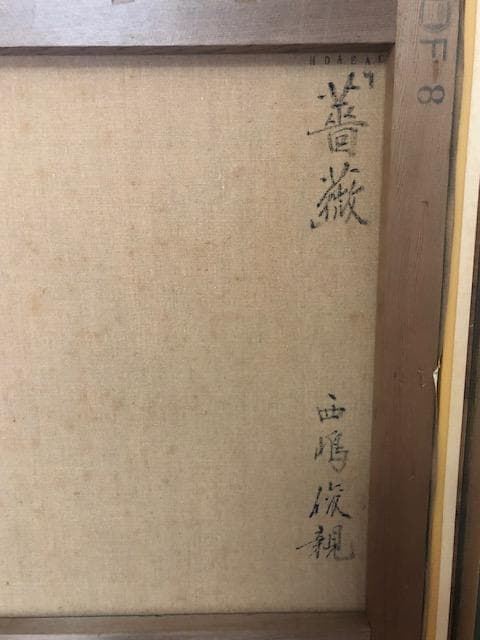 F-8
「薔薇」
西嶋俊親